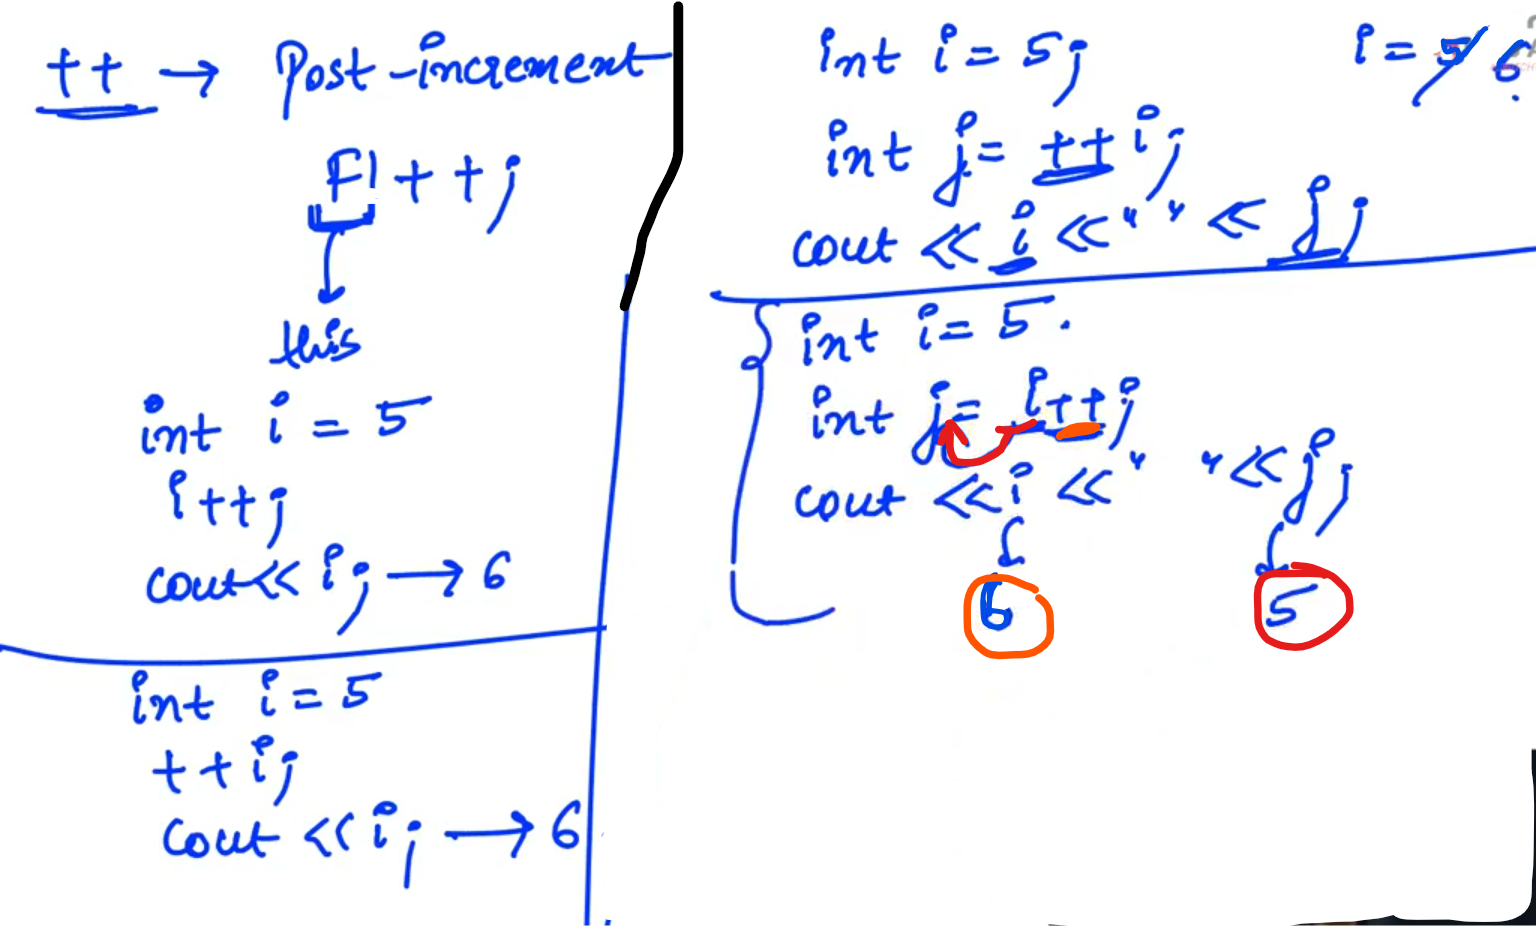 ++ → Post-increment
F1++;
this
int i = 5
i++;
cout << i; → 6
int i = 5
++i;
cout << i; → 6
int i = 5;
i = 5 6
int j = ++i;
cout << i << " " << j;
int i = 5.
int j = i++;
cout << i << " " << j;
6 5